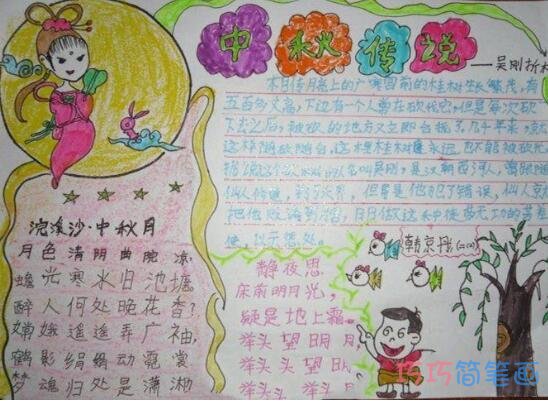 中秋传说
——吴刚折
本日传月亮上的广寒宫前的桂树生长繁茂，有
五百多丈高，下边有一个人常在砍伐它，但是每次砍
下去之后，被砍的地方又立即合拢了，几千年来，就
这样随砍随合，这棵桂树永远也不能被砍光
据说这个砍树的人名叫吴刚，是汉朝西河人，曾跟随
仙人修道，到了天界，但是他犯了错误，仙人
把他贬谪到月宫，日日做这种徒劳无功的苦差
使，以示惩处。
浣溪沙·中秋月
月色清阴曲院凉，
蟾光寒水旧池塘
醉人何处晚花香？
嫦娥遥遥弄广袖，
鹤影绢绢动霓裳
梦魂归处是潇湘
静夜思
床前明月光，
疑是地上霜。
举头望明月
举头望明月
举头 举头月
韩京丹
巧巧简笔画